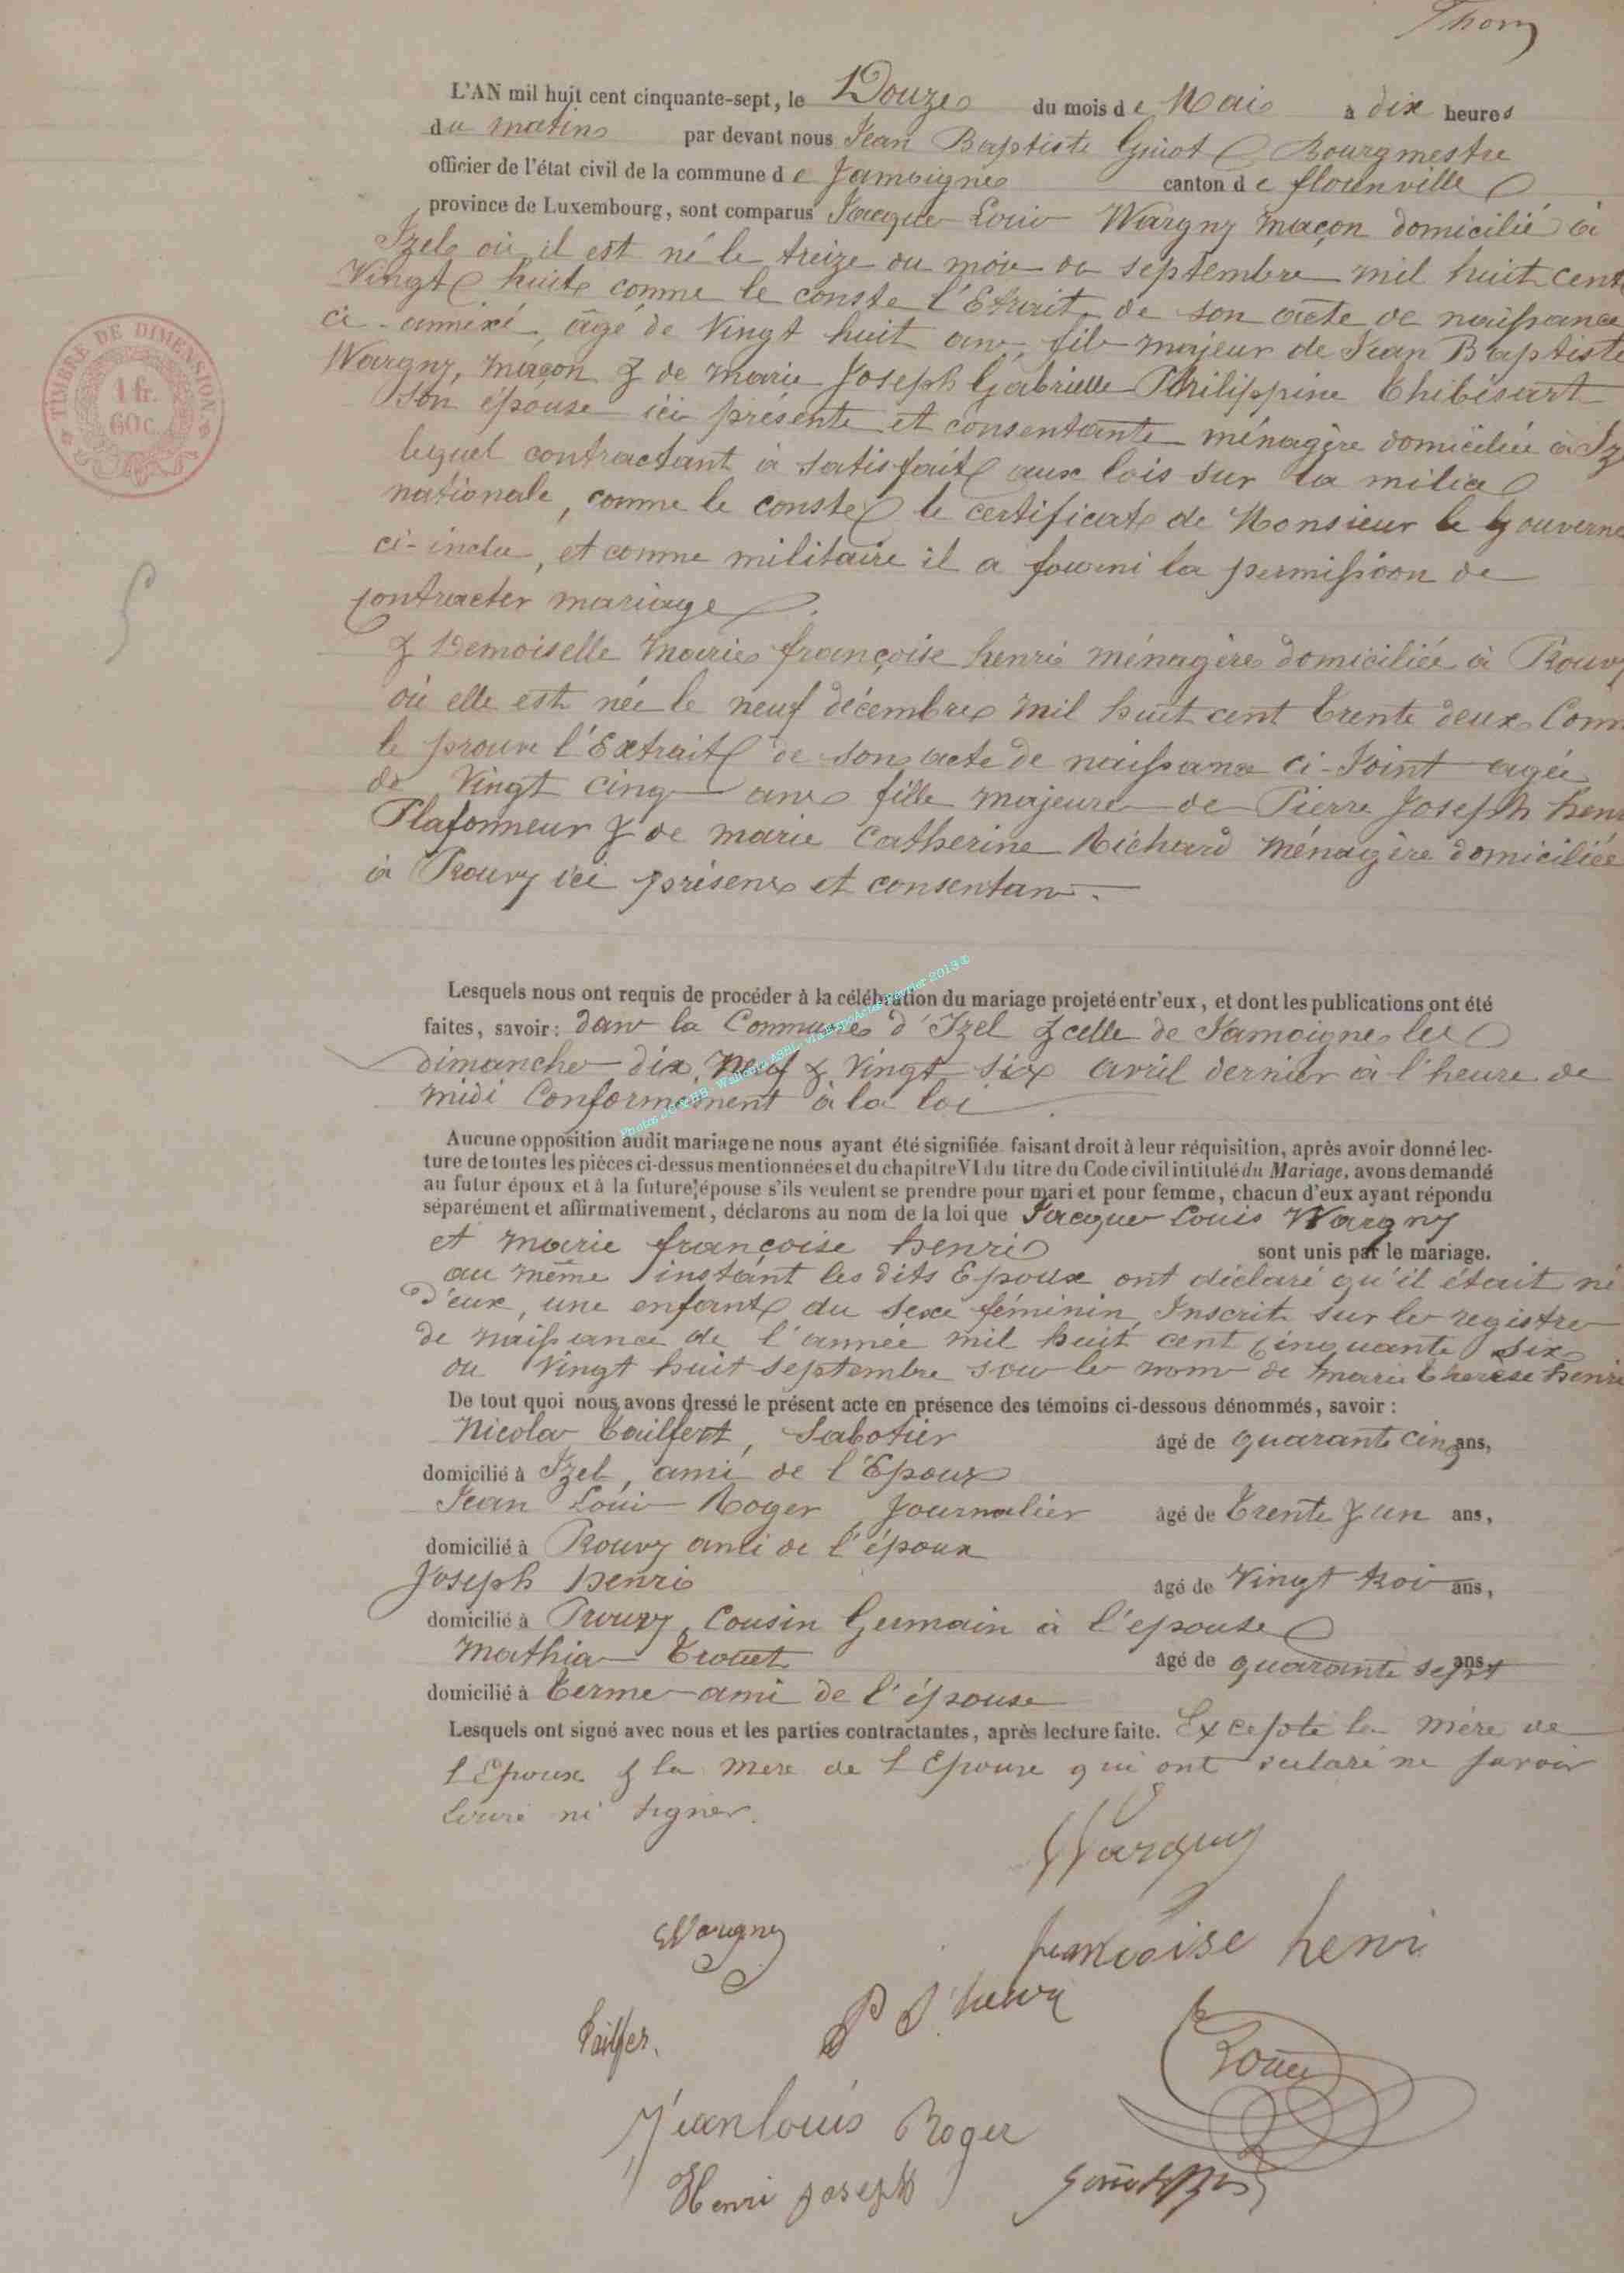 Thom
L'AN mil huit cent cinquante-sept, le Douze du mois de Mai à dix heures
du matin par devant nous Jean Baptiste Guiot Bourgmestre
officier de l'état civil de la commune de Jamoigne canton de florenville
province de Luxembourg, sont comparus Jacques Louis Wargny maçon domicilié à
Izel où il est né le treize du mois de septembre mil huit cent
Vingt huit comme le conste l'Extrait de son acte de naissance
ci-annexé, âgé de Vingt huit ans, fils majeur de Jean Baptiste
Wargny, maçon & de marie Joseph Gabrielle Philippine Thibésart
son épouse ici présente et consentante ménagère domiciliée à Iz
lequel contractant à satisfait aux lois sur la milice
nationale, comme le conste le certificat de Monsieur le Gouverne
ci-inclu, et comme militaire il a fourni la permission de
contracter mariage.
& Demoiselle Marie françoise henri ménagère domiciliée à Rouvy
où elle est née le neuf décembre mil huit cent trente deux Com
le prouve l'Extrait de son acte de naissance ci-Joint agée
de Vingt cinq ans fille majeure de Pierre Joseph hen
Plafonneur & de marie Catherine Richard ménagère domiciliée
à Rouvy ici présens et consentans.
Lesquels nous ont requis de procéder à la célébration du mariage projeté entr'eux, et dont les publications ont été
faites, savoir : dans la Commune d'Izel & celle de Jamoigne les
dimanche dix Neuf & Vingt six avril dernier à l'heure de
midi Conformement à la loi.
Photos JC & BB - Wallonia ASBL via ExpoActes Février 2013 ©
Aucune opposition audit mariage ne nous ayant été signifiée faisant droit à leur réquisition, après avoir donné lec-
ture de toutes les pièces ci-dessus mentionnées et du chapitre VI du titre du Code civil intitulé du Mariage, avons demandé
au futur époux et à la future épouse s'ils veulent se prendre pour mari et pour femme, chacun d'eux ayant répondu
séparément et affirmativement, déclarons au nom de la loi que Jacques Louis Wargny
et marie françoise henri sont unis par le mariage.
au même instant les dits Epoux ont déclaré qu'il était né
d'eux, une enfant du sexe féminin, Inscrit sur les registres
de naissance de l'année mil huit cent cinquante six
du Vingt huit septembre sous les noms de marie therèse henri
De tout quoi nous avons dressé le présent acte en présence des témoins ci-dessous dénommés, savoir :
Nicolas Tailfert, Sabotier âgé de quarante cinq ans,
domicilié à Izel, ami de l'Epoux
Jean Louis Roger Journalier âgé de trente & un ans,
domicilié à Rouvy ami de l'époux
Joseph henri âgé de Vingt trois ans,
domicilié à Rouvy, Cousin Germain à l'epouse
Mathias Trouet âgé de quarante sept ans
domicilié à Termes ami de l'épouse
Lesquels ont signé avec nous et les parties contractantes, après lecture faite. Excepté la mère de
l'Epoux & la mere de l'Epouse qui ont déclaré ne savoir
écrire ni signer.
Wargny
Wargny
françoise henri
P J henri
Tailfer.
Jean louis Roger
Henri joseph
TIMBRE DE DIMENSION
1 fr.
60 c.